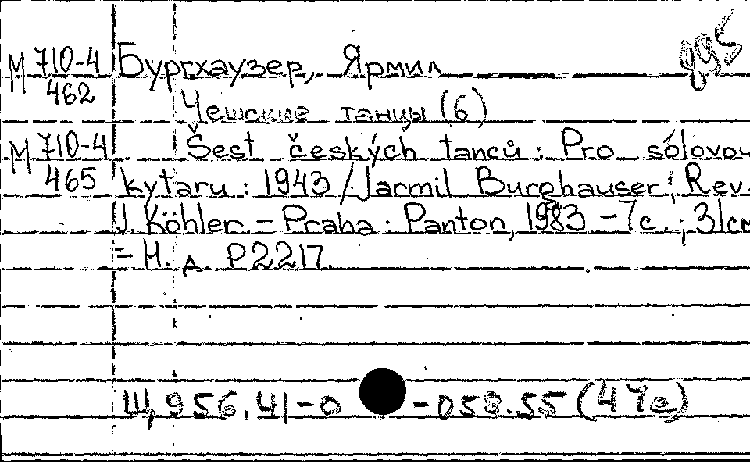 М 710-4 Бургхаузер, Ярмил
462 Чешские танцы (6)
М 710-4 Šest českých tanců : Pro sólovou
465 kytaru : 1943 / Jarmil Burghauser ; Rev.
J. Köhler. – Praha : Panton, 1983 – 7 с. ; 31 cm
– Н. д. P 2217.
Щ 956.41-0 -058.55 (4 Че)